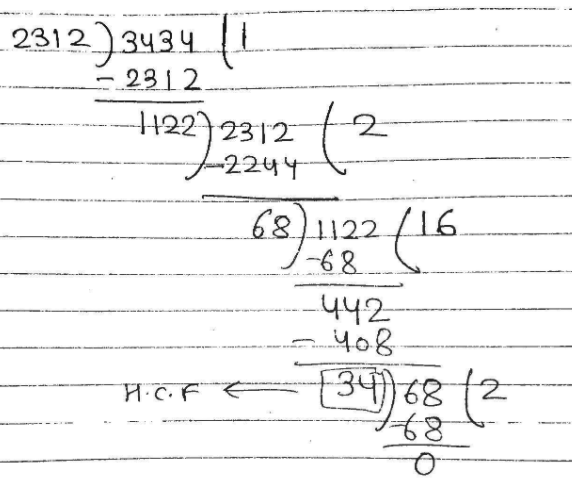 2312)3434(1
- 2312
1122)2312(2
-2244
68)1122(16
-68
442
- 408
H.C.F ← 34)68(2
-68
0